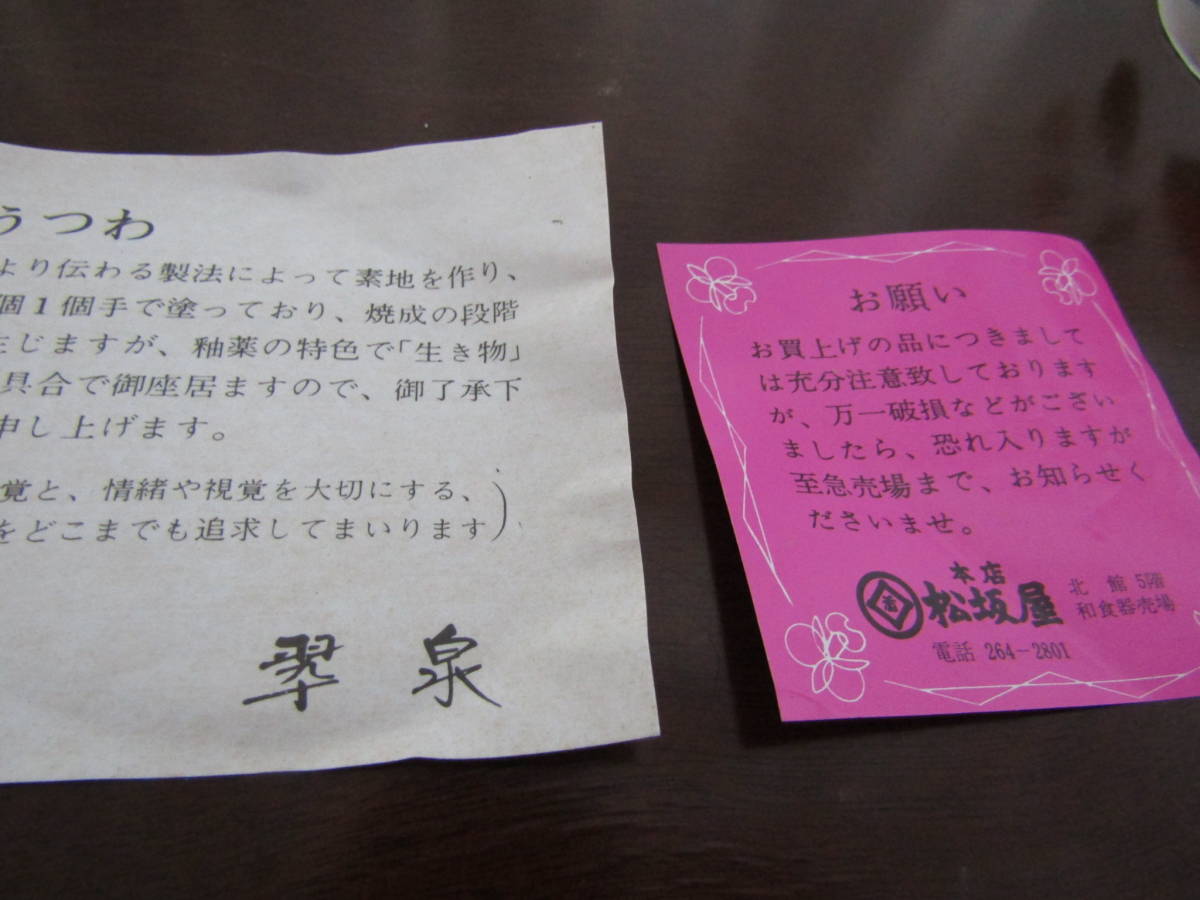 うつわ
より伝わる製法によって素地を作り、
個1個手で塗っており、焼成の段階
生じますが、釉薬の特色で「生き物」
具合で御座居ますので、御了承下
申し上げます。
覚と、情緒や視覚を大切にする、
をどこまでも追求してまいります)
翠 泉
お願い
お買上げの品につきまして
は充分注意致しております
が、万一破損などがござい
ましたら、恐れ入りますが
至急売場まで、お知らせく
ださいませ。
本店
松坂屋
北館 5階
和食器売場
電話 264-2801